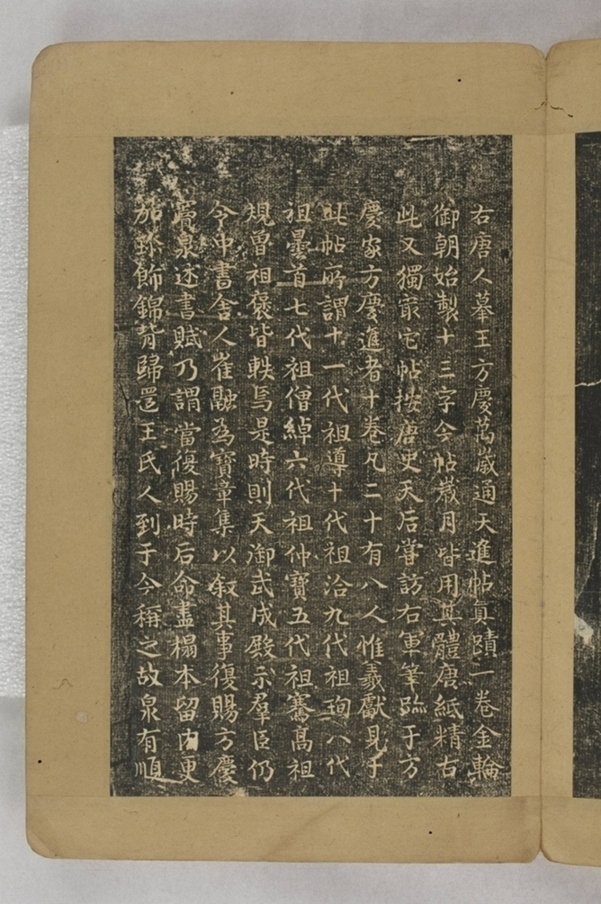 右唐人摹王方慶萬歲通天進帖真蹟一卷金輪
御朝始製十三字今帖歲月皆用其體唐紙精古
此又獨㝡它帖按唐史天后嘗訪右軍筆跡于方
慶家方慶進者十卷凡二十有八人惟羲獻見于
此帖所謂十一代祖導十代祖洽九代祖珣八代
祖曇首七代祖僧綽六代祖仲寶五代祖騫高祖
規曽祖褒皆軼焉是時則天御武成殿示羣臣仍
令中書舍人崔融為寶章集以叙其事復賜方慶
竇泉述書賦乃謂當復賜時后命盡榻本留内更
加錦飾錦背歸還王氏人到于今稱之故泉有順